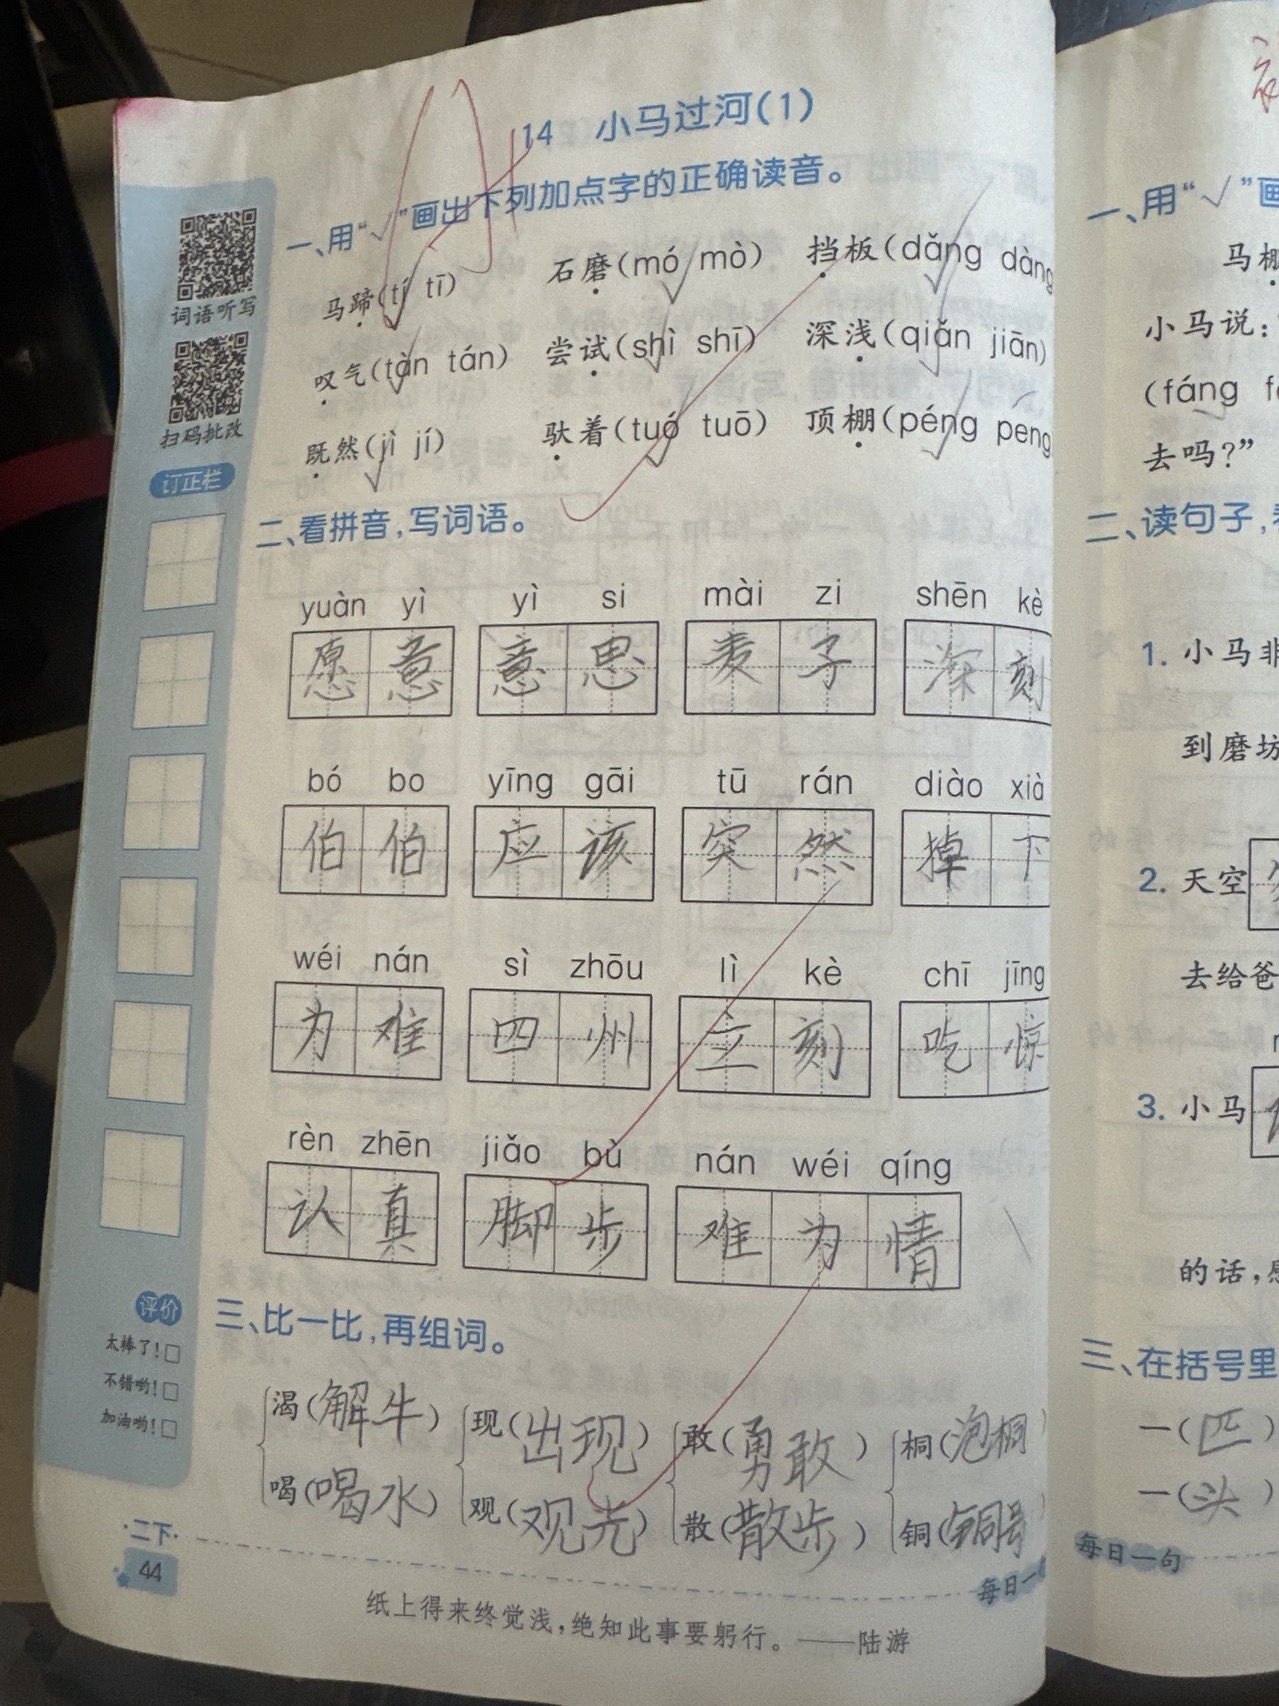 14 小马过河(1)
一、用“√”画出下列加点字的正确读音。
马蹄(tí tī) 石磨(mó mò) 挡板(dǎng dàng
叹气(tàn tán) 尝试(shì shī) 深浅(qiǎn jiān)
既然(jì jí) 驮着(tuó tuō) 顶棚(péng pēng
二、看拼音,写词语。
yuàn yì yì si mài zi shēn kè
愿意 意思 麦子 深刻
bó bo yīng gāi tū rán diào xià
伯伯 应该 突然 掉下
wéi nán sì zhōu lì kè chī jīng
为难 四州 立刻 吃惊
rèn zhēn jiǎo bù nán wéi qíng
认真 脚步 难为情
三、比一比,再组词。
渴(解牛) 现(出现) 敢(勇敢) 桐(泡桐)
喝(喝水) 观(观光) 散(散步) 铜(铜号
纸上得来终觉浅,绝知此事要躬行。——陆游
每日一
·二下·
44
词语听写
扫码批改
订正栏
评价
太棒了!□
不错哟!□
加油哟!□
一、用“√”画
马棚
小马说:
(fáng
去吗?”
二、读句子,
1. 小马非
到磨坊
2. 天空
去给爸
3. 小马
的话,
三、在括号里
一(匹)
一(头)
每日一句